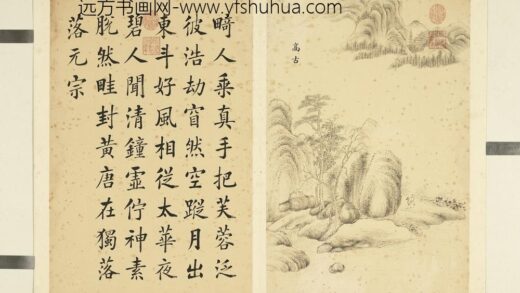 远方书画网-www.yfshuhua.com
高古
畸人乘真手把芙蓉泛
彼浩劫窅然空蹤月出
東斗好風相從太華夜
碧人聞清鐘虛佇神素
脫然畦封黃唐在獨落
落元宗